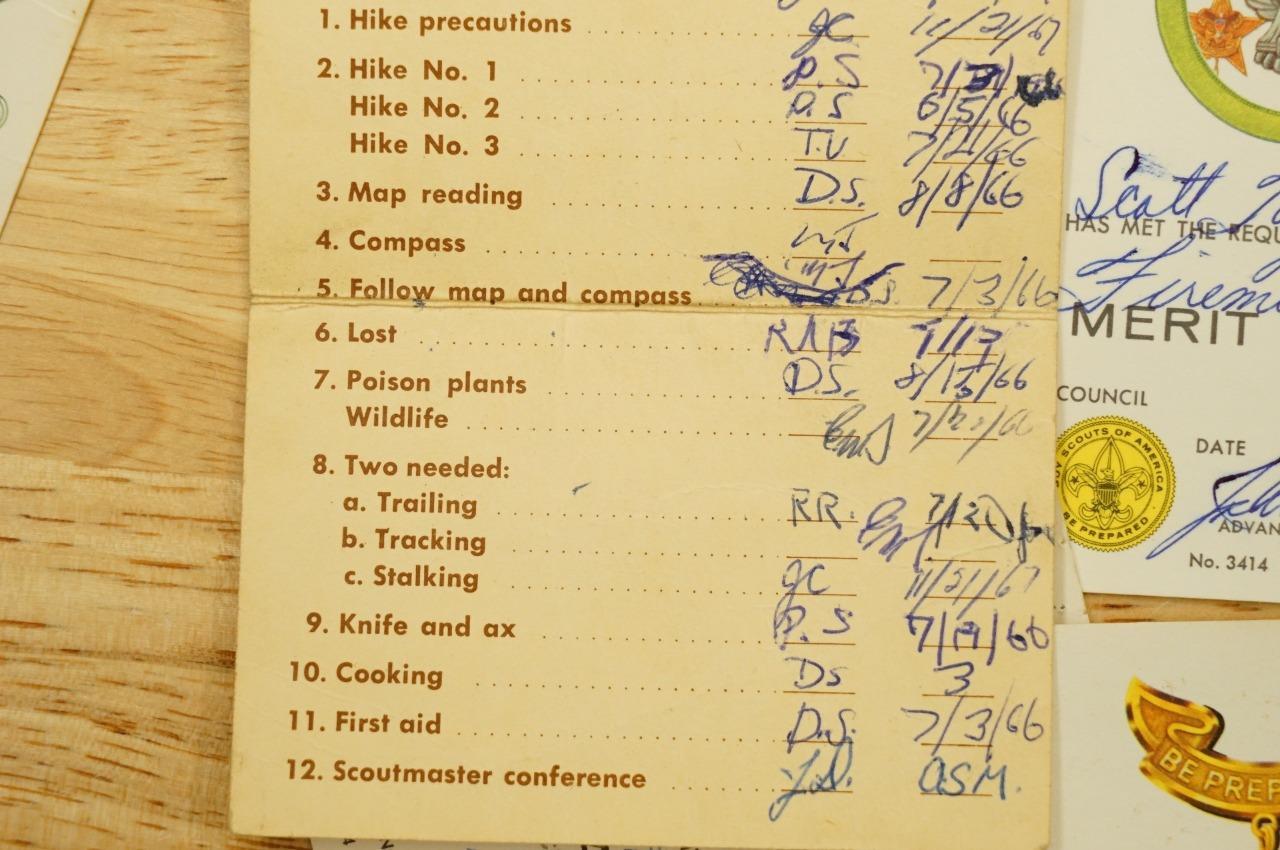 1. Hike precautions gC 11/21/67
2. Hike No. 1 P.S
Hike No. 2 P.S 6/5/66
Hike No. 3 T.V
3. Map reading D.S. 8/8/66
4. Compass
5. Follow map and compass D.S. 7/3/66
6. Lost
7. Poison plants D.S.
Wildlife
8. Two needed:
a. Trailing RR.
b. Tracking
c. Stalking gC 11/21/67
9. Knife and ax P.S 7/19/66
10. Cooking Ds 3
11. First aid D.S. 7/3/66
12. Scoutmaster conference J.D. ASM.
Scott
HAS MET THE REQU
Firem
MERIT
COUNCIL
BOY SCOUTS OF AMERICA
BE PREPARED
DATE
ADVAN
No. 3414
BE PREP